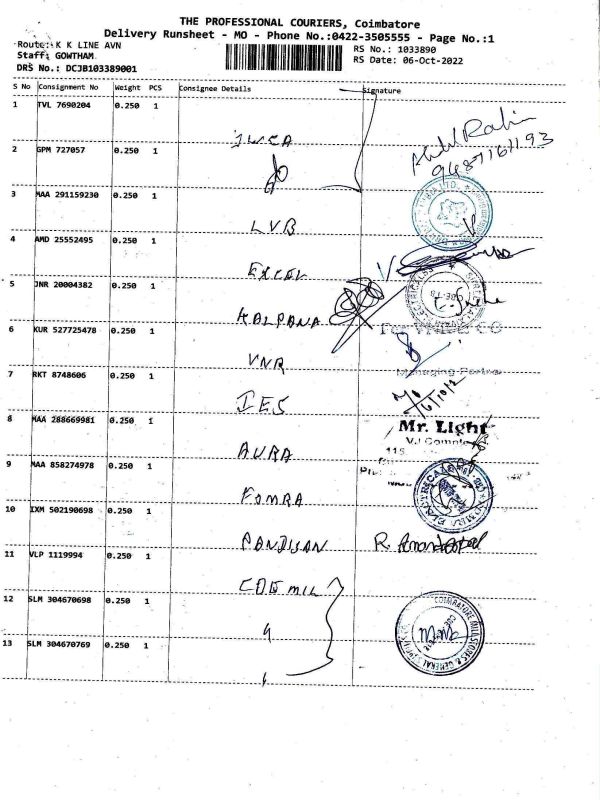 THE PROFESSIONAL COURIERS, Coimbatore
Delivery Runsheet - MO - Phone No.:0422-3505555 - Page No.:1
Route: K K LINE AVN
Staff: GOWTHAM.
DRS No.: DCJB103389001
RS No.: 1033890
RS Date: 06-Oct-2022
S No Consignment No Weight PCS Consignee Details Signature
1 TVL 7690204 0.250 1
2 GPM 727057 0.250 1
3 MAA 291159230 0.250 1 LVB
4 AMD 25552495 0.250 1 EXCEL
5 JNR 20004382 0.250 1 KALPANA
6 KUR 527725478 0.250 1 VNR
Managing Partner
7 RKT 8748606 0.250 1 IES
6/10/2
Mr. Light
V.J Complex
115
8 MAA 288669981 0.250 1 AURA
9 MAA 858274978 0.250 1 FOMRA
10 IXM 502190698 0.250 1 PANDIYAN
11 VLP 1119994 0.250 1
12 SLM 304670698 0.250 1 "
13 SLM 304670769 0.250 1 "